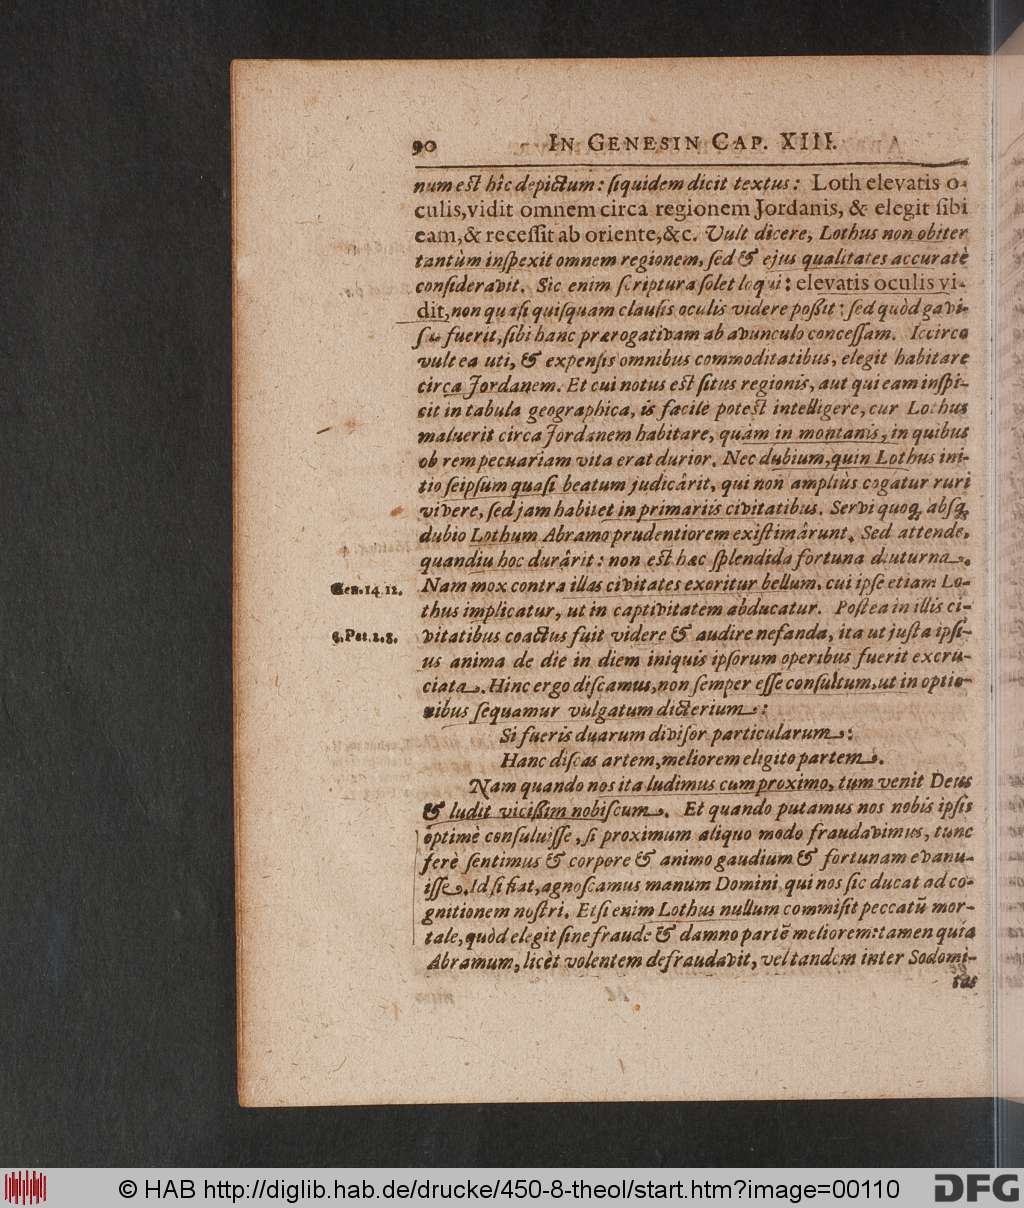 90 IN GENESIN CAP. XIII.
num est hîc depictum: siquidem dicit textus: Loth elevatis o-
culis, vidit omnem circa regionem Jordanis, & elegit sibi
eam, & recessit ab oriente, &c. Vult dicere, Lothus non obiter
tantùm inspexit omnem regionem, sed & ejus qualitates accuratè
consideravit. Sic enim scriptura solet loqui: elevatis oculis vi-
dit, non quasi quisquam clausis oculis videre possit: sed quòd gavi-
sus fuerit, sibi hanc prærogativam ab avunculo concessam. Iccirco
vult ea uti, & expensis omnibus commoditatibus, elegit habitare
circa Jordanem. Et cui notus est situs regionis, aut qui eam inspi-
cit in tabula geographica, is facilè potest intelligere, cur Lothus
maluerit circa Jordanem habitare, quàm in montanis, in quibus
ob rem pecuariam vita erat durior. Nec dubium, quin Lothus ini-
tio seipsum quasi beatum judicârit, qui non ampliùs cogatur ruri
vivere, sed jam habitet in primariis civitatibus. Servi quoq, absq,
dubio Lothum Abramo prudentiorem existimârunt. Sed attende,
quandiu hoc durârit: non est hæc splendida fortuna diuturna.
Gen. 14. 12. Nam mox contra illas civitates exoritur bellum, cui ipse etiam Lo-
thus implicatur, ut in captivitatem abducatur. Postea in illis ci-
2. Pet. 2. 8. vitatibus coactus fuit videre & audire nefanda, ita ut justa ipsi-
us anima de die in diem iniquis ipsorum operibus fuerit excru-
ciata. Hinc ergo discamus, non semper esse consultum, ut in optio-
nibus sequamur vulgatum dicterium:
Si fueris duarum divisor particularum:
Hanc discas artem, meliorem eligito partem.
Nam quando nos ita ludimus cum proximo, tum venit Deus
& ludit vicissim nobiscum. Et quando putamus nos nobis ipsis
optimè consuluisse, si proximum aliquo modo fraudavimus, tunc
ferè sentimus & corpore & animo gaudium & fortunam evanu-
isse. Id si fiat, agnoscamus manum Domini, qui nos sic ducat ad co-
gnitionem nostri. Etsi enim Lothus nullum commisit peccatũ mor-
tale, quòd elegit sine fraude & damno partẽ meliorem: tamen quia
Abramum, licèt volentem defraudavit, vel tandem inter Sodomi-
tas
© HAB http://diglib.hab.de/drucke/450-8-theol/start.htm?image=00110
DFG